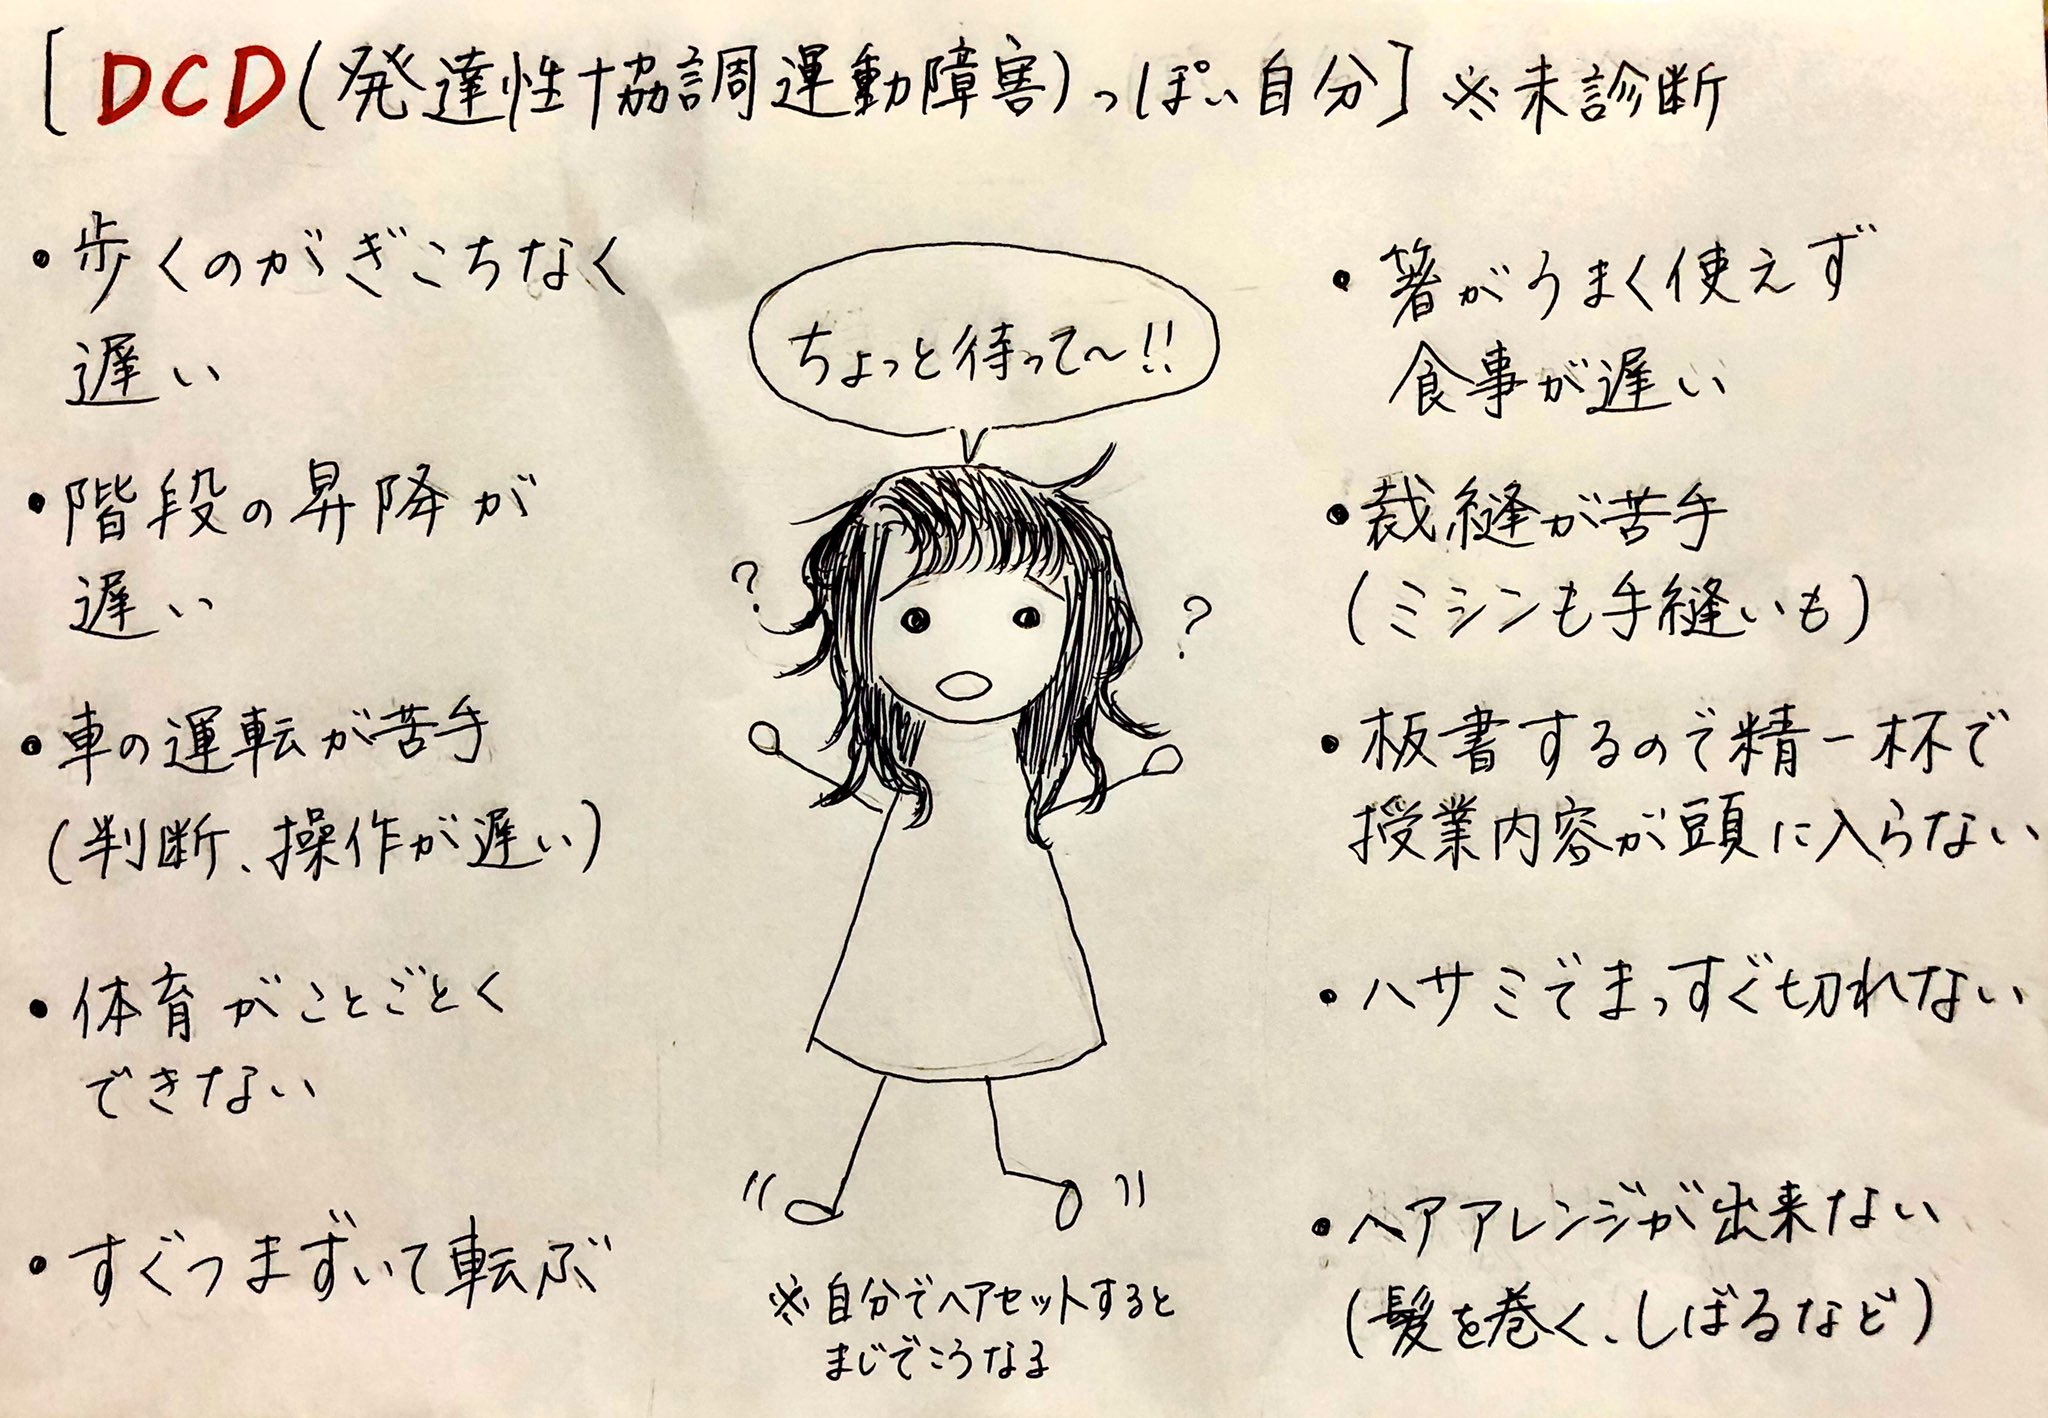 [DCD(発達性協調運動障害)っぽい自分]※未診断
・歩くのがぎこちなく
遅い
・階段の昇降が
遅い
・車の運転が苦手
(判断、操作が遅い)
・体育がことごとく
できない
・すぐつまずいて転ぶ
ちょっと待って〜!!
?
?
※自分でヘアセットすると
まじでこうなる
・箸がうまく使えず
食事が遅い
・裁縫が苦手
(ミシンも手縫いも)
・板書するので精一杯で
授業内容が頭に入らない
・ハサミでまっすぐ切れない
・ヘアアレンジが出来ない
(髪を巻く、しばるなど)